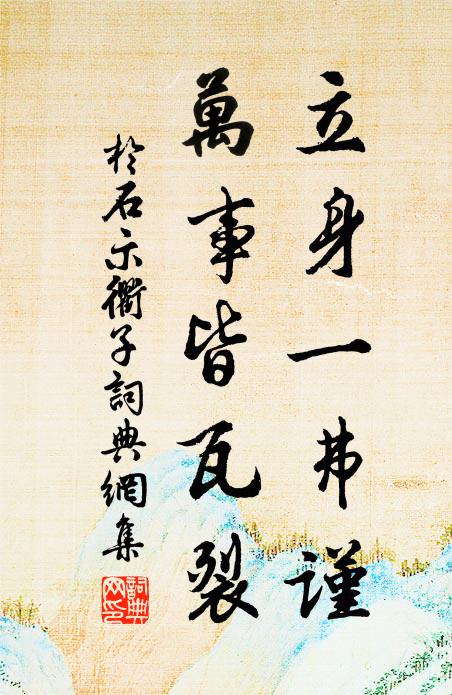 立身一弗謹
萬事皆瓦裂
於石示衢子詞典網集
詞典